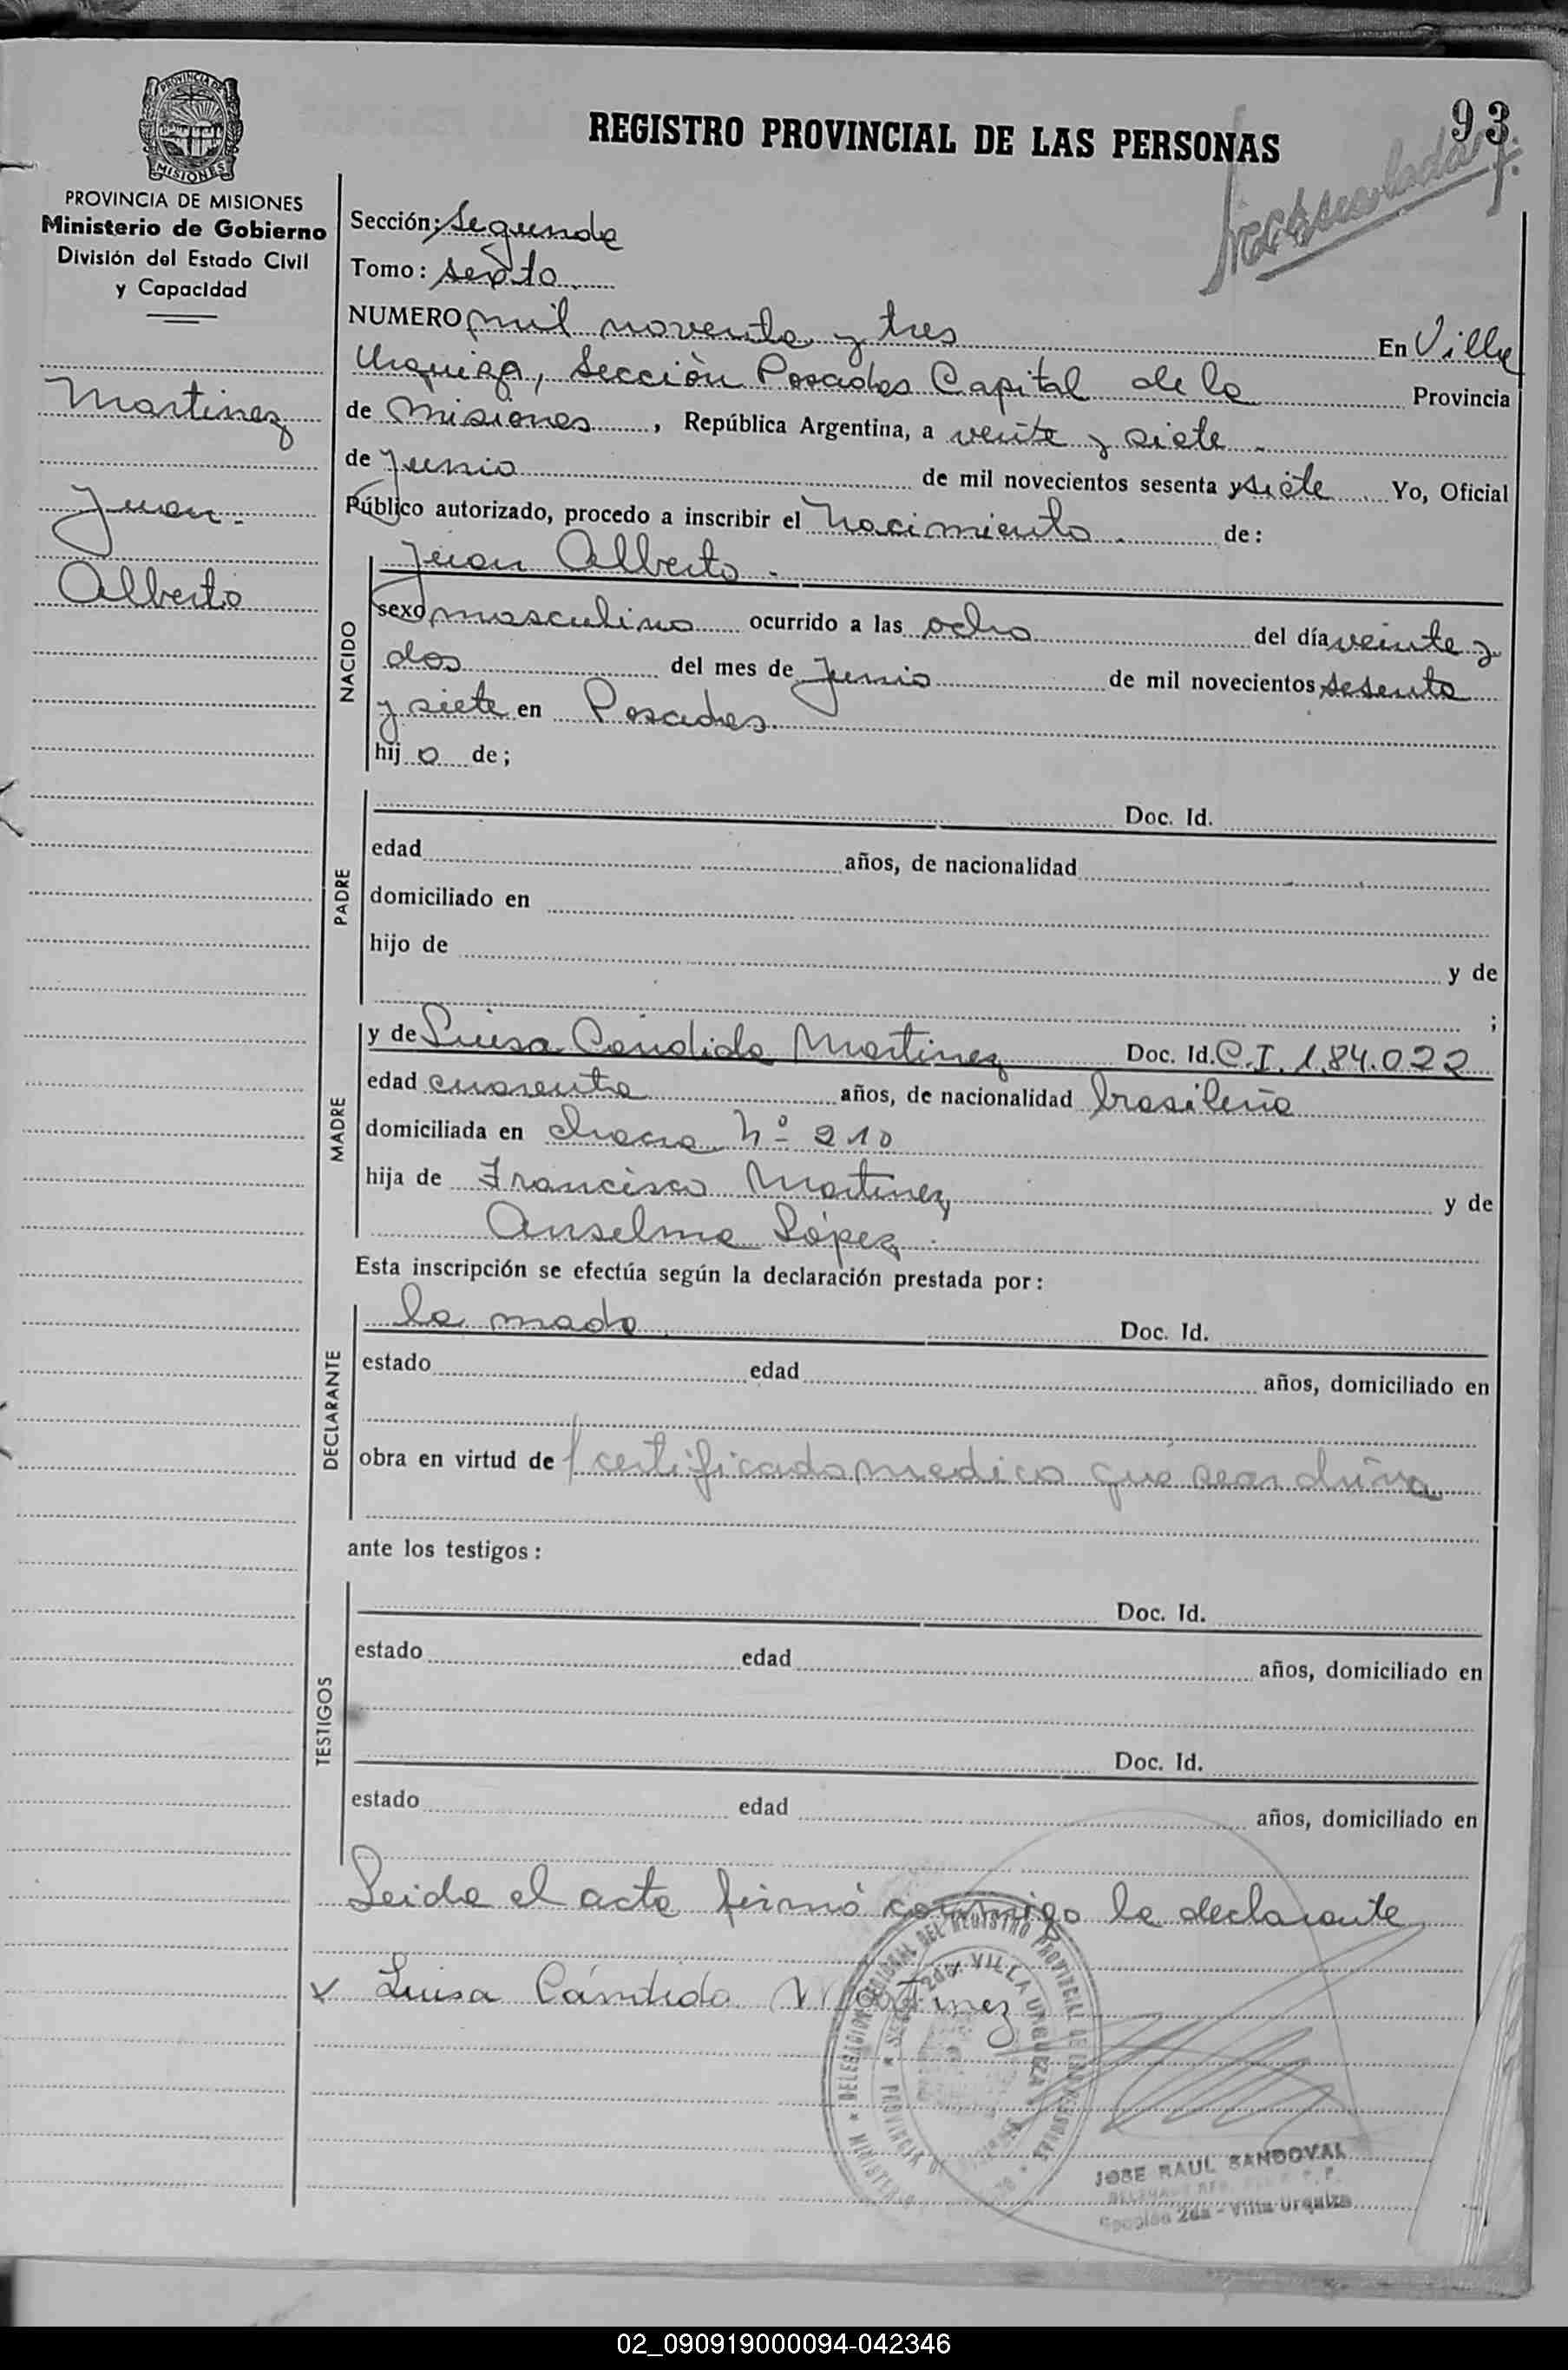 93
REGISTRO PROVINCIAL DE LAS PERSONAS
PROVINCIA DE MISIONES
PROVINCIA DE MISIONES
Ministerio de Gobierno
División del Estado Civil
y Capacidad
Martinez
Juan.
Alberto
Sección: Segunda
Tomo: sexto
NUMERO mil noventa y tres En Villa
Urquiza, Sección Posadas Capital de la Provincia
de Misiones, República Argentina, a veinte y siete
de Junio de mil novecientos sesenta y siete Yo, Oficial
Público autorizado, procedo a inscribir el nacimiento de:
NACIDO
Juan Alberto.
sexo masculino ocurrido a las ocho del día veinte y
dos del mes de junio de mil novecientos sesenta
y siete en Posadas
hij o de;
PADRE
Doc. Id.
edad años, de nacionalidad
domiciliado en
hijo de y de
;
MADRE
y de Luisa Cándida Martinez Doc. Id. C.I. 184.022
edad cuarenta años, de nacionalidad brasileña
domiciliada en chacra Nº 210
hija de Francisco Martinez y de
Anselma López
Esta inscripción se efectúa según la declaración prestada por:
DECLARANTE
la madre Doc. Id.
estado edad años, domiciliado en
obra en virtud de certificado medico que se archiva
ante los testigos:
TESTIGOS
Doc. Id.
estado edad años, domiciliado en
Doc. Id.
estado edad años, domiciliado en
Leida el acta firmó conmigo la declarante
x Luisa Cándida Martinez
DELEGACION REGIONAL DEL REGISTRO PROVINCIAL DE LAS PERSONAS
VILLA URQUIZA
JOSE RAUL SANDOVAL
Sección 2da - Villa Urquiza
02_090919000094-042346